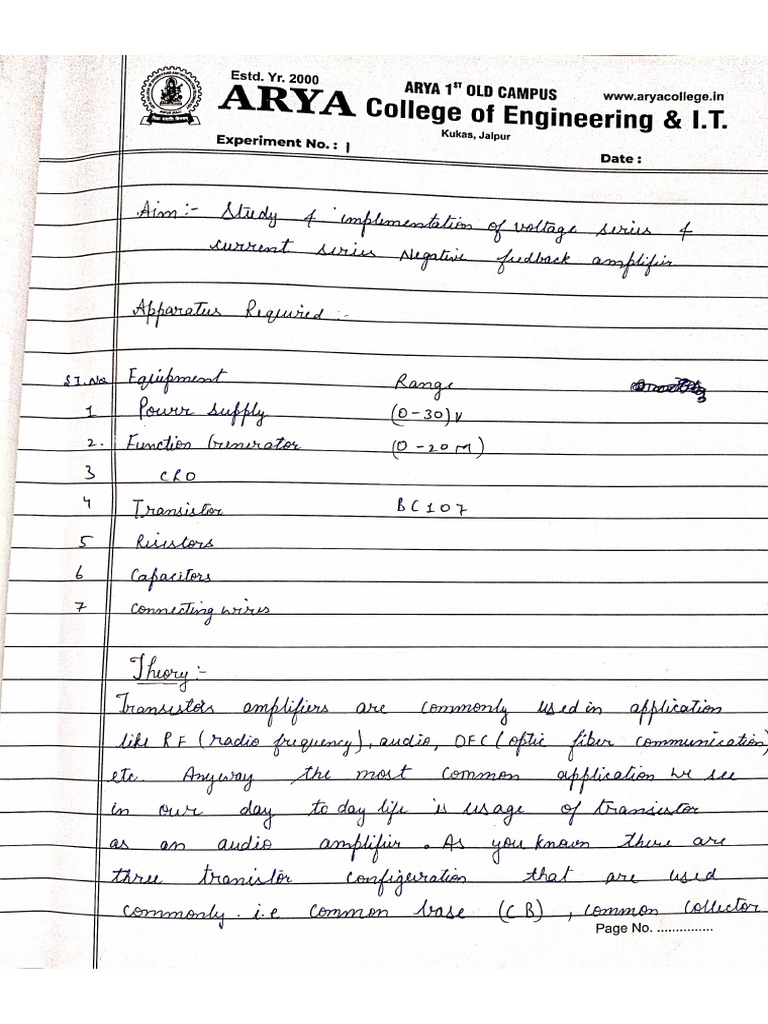 Estd. Yr. 2000
ARYA 1ST OLD CAMPUS
www.aryacollege.in
ARYA College of Engineering & I.T.
Kukas, Jaipur
Experiment No. : 1
Date :
Aim:- Study & implementation of voltage series &
current series Negative feedback amplifier
Apparatus Required :-
SI.No Equipment Range
1 Power supply (0-30)V
2. Function Generator (0-20M)
3 CRO
4 Transistor BC107
5 Resistors
6 Capacitors
7 Connecting wires
Theory:-
Transistors amplifiers are commonly used in application
like RF (radio frequency), audio, OFC (optic fiber communication)
etc. Anyway the most common application we see
in our day to day life is usage of transistor
as an audio amplifier. As you known there are
three tranistor configeuration that are used
commonly. i.e common base (CB), common collector
Page No. ...............